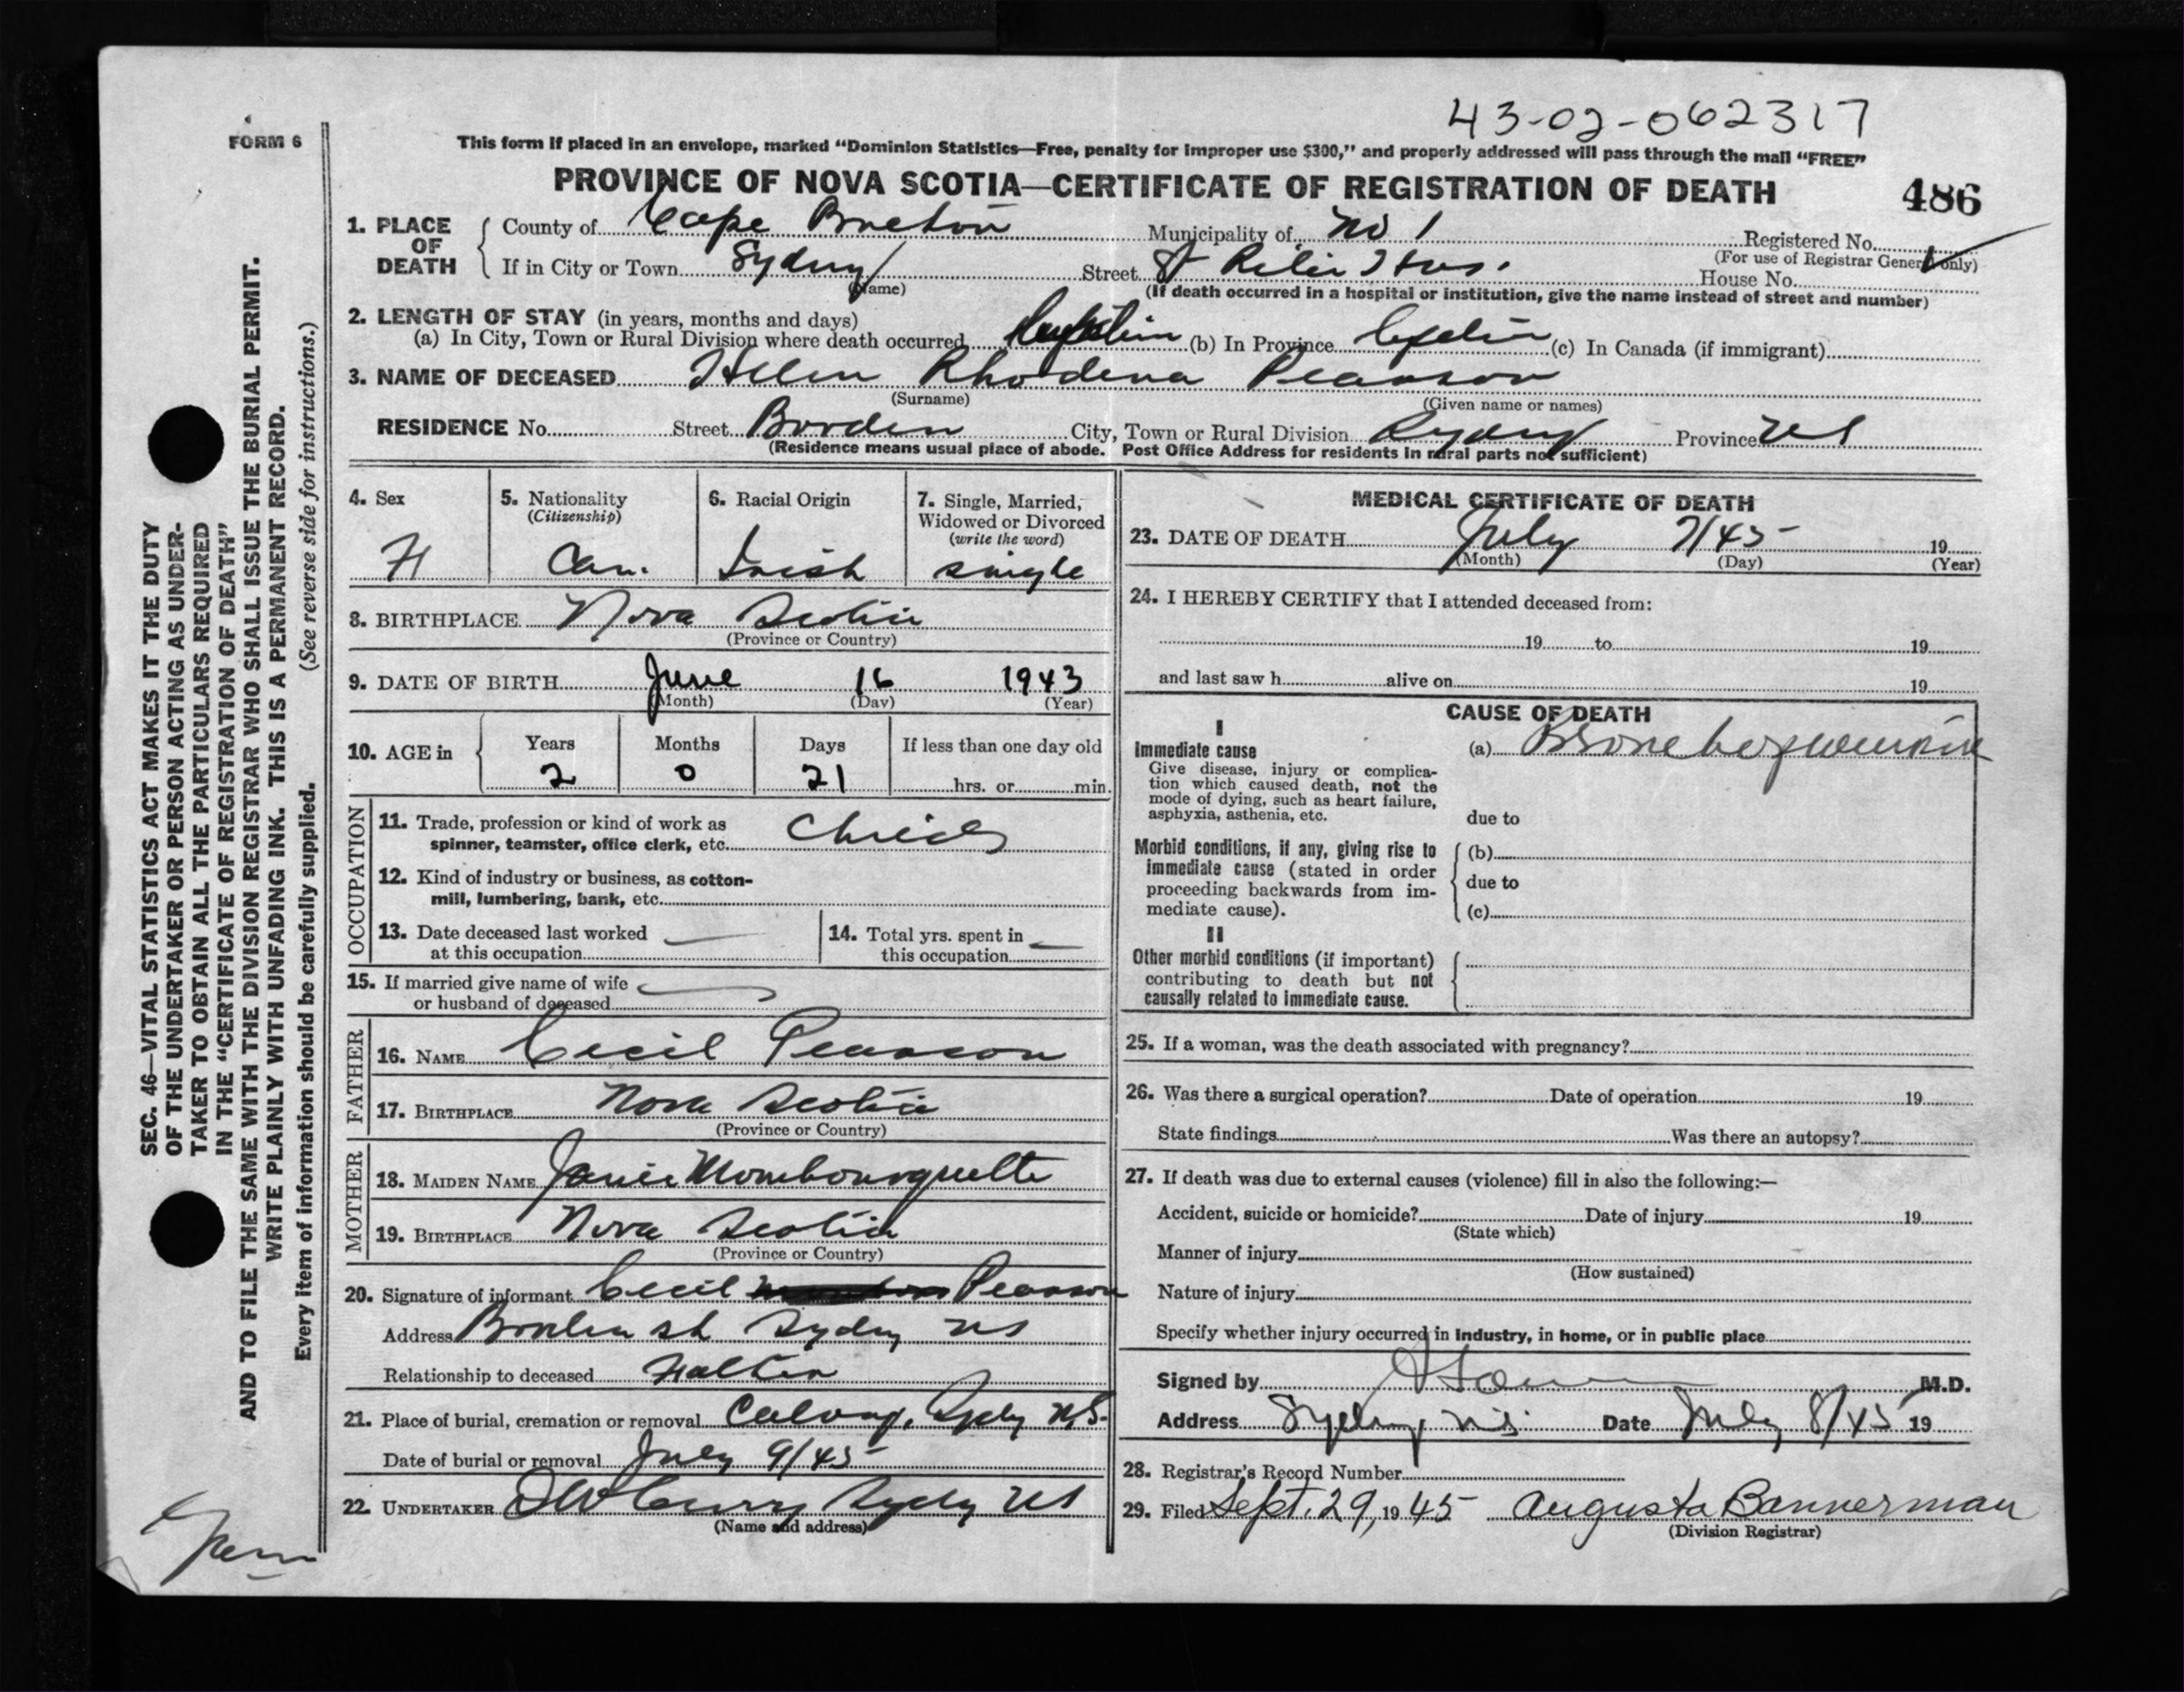 43-02-062317
FORM 6
This form if placed in an envelope, marked “Dominion Statistics—Free, penalty for improper use $300,” and properly addressed will pass through the mail “FREE”
PROVINCE OF NOVA SCOTIA—CERTIFICATE OF REGISTRATION OF DEATH 486
1. PLACE OF DEATH
County of Cape Breton Municipality of No 1 Registered No.
(For use of Registrar General only)
If in City or Town Sydney Street St Rita Hos. House No.
(Name) (If death occurred in a hospital or institution, give the name instead of street and number)
2. LENGTH OF STAY (in years, months and days)
(a) In City, Town or Rural Division where death occurred (b) In Province (c) In Canada (if immigrant)
3. NAME OF DECEASED Helen Rhodena Pearson
(Surname) (Given name or names)
RESIDENCE No. Street Borden City, Town or Rural Division Sydney Province NS
(Residence means usual place of abode. Post Office Address for residents in rural parts not sufficient)
4. Sex F
5. Nationality (Citizenship) Can.
6. Racial Origin Irish
7. Single, Married, Widowed or Divorced (write the word) single
8. BIRTHPLACE Nova Scotia
(Province or Country)
9. DATE OF BIRTH June 16 1943
(Month) (Day) (Year)
10. AGE in Years 2 Months 0 Days 21 If less than one day old
hrs. or min.
OCCUPATION
11. Trade, profession or kind of work as
spinner, teamster, office clerk, etc. Child
12. Kind of industry or business, as cotton-
mill, lumbering, bank, etc.
13. Date deceased last worked
at this occupation
14. Total yrs. spent in
this occupation
15. If married give name of wife
or husband of deceased
FATHER
16. NAME Cecil Pearson
17. BIRTHPLACE Nova Scotia
(Province or Country)
MOTHER
18. MAIDEN NAME Janie Mombourquette
19. BIRTHPLACE Nova Scotia
(Province or Country)
20. Signature of informant Cecil Pearson
Address Borden st Sydney NS
Relationship to deceased Father
21. Place of burial, cremation or removal Calvary, Sydney N.S.
Date of burial or removal July 9/45
22. UNDERTAKER Curry Sydney NS
(Name and address)
MEDICAL CERTIFICATE OF DEATH
23. DATE OF DEATH July 7/45 19
(Month) (Day) (Year)
24. I HEREBY CERTIFY that I attended deceased from:
19 to 19
and last saw h alive on 19
CAUSE OF DEATH
I
Immediate cause
Give disease, injury or complica-
tion which caused death, not the
mode of dying, such as heart failure,
asphyxia, asthenia, etc.
(a) Bronchopneumonia
due to
Morbid conditions, if any, giving rise to
immediate cause (stated in order
proceeding backwards from im-
mediate cause).
(b)
due to
(c)
II
Other morbid conditions (if important)
contributing to death but not
causally related to immediate cause.
25. If a woman, was the death associated with pregnancy?
26. Was there a surgical operation? Date of operation 19
State findings Was there an autopsy?
27. If death was due to external causes (violence) fill in also the following:—
Accident, suicide or homicide? Date of injury 19
(State which)
Manner of injury
(How sustained)
Nature of injury
Specify whether injury occurred in industry, in home, or in public place
Signed by M.D.
Address Sydney, N.S. Date July 8/45 19
28. Registrar's Record Number
29. Filed Sept. 29, 1945 Augusta Bannerman
(Division Registrar)
SEC. 46—VITAL STATISTICS ACT MAKES IT THE DUTY
OF THE UNDERTAKER OR PERSON ACTING AS UNDER-
TAKER TO OBTAIN ALL THE PARTICULARS REQUIRED
IN THE “CERTIFICATE OF REGISTRATION OF DEATH”
AND TO FILE THE SAME WITH THE DIVISION REGISTRAR WHO SHALL ISSUE THE BURIAL PERMIT.
WRITE PLAINLY WITH UNFADING INK. THIS IS A PERMANENT RECORD.
Every item of information should be carefully supplied. (See reverse side for instructions.)